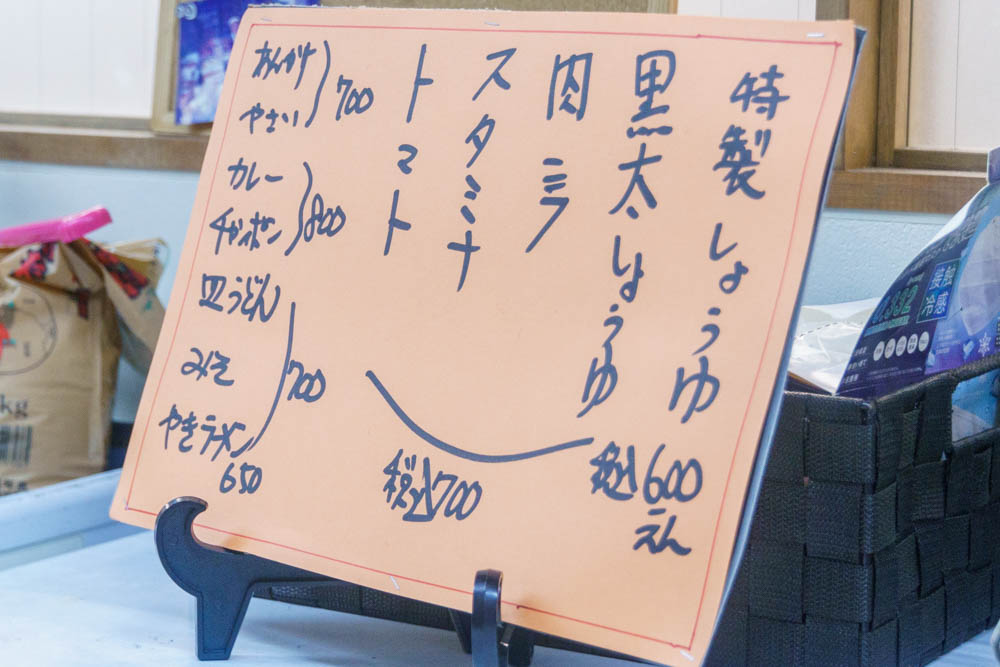 特製しょうゆ
税込600
えん
黒太しょうゆ
肉ニラ
スタミナ
トマト
税込700
あんかけ
やさい
700
カレー
チャンポン
800
皿うどん
みそ
700
やきラーメン
650
接触
冷感
kg